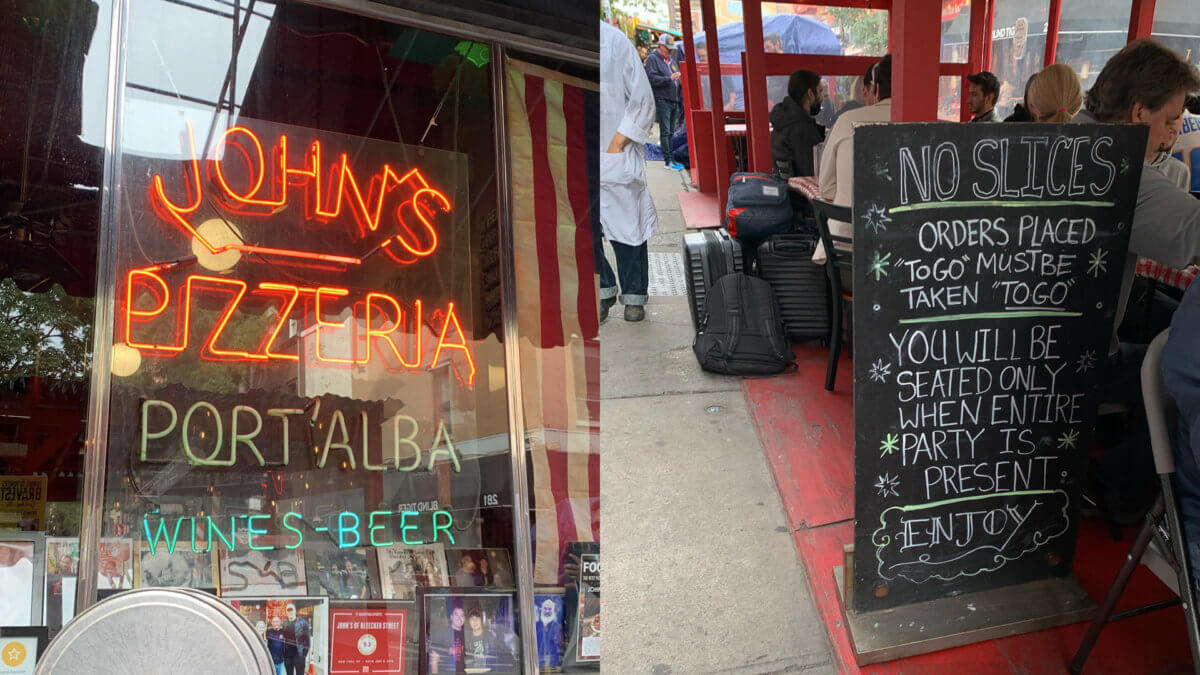 JOHN'S
PIZZERIA
PORT'ALBA
WINES-BEER
BLIND TIGER
281
BRAVEST
FOO
JOHN'S OF BLEECKER STREET
9.3
BLIND TIG
NO SLICES
ORDERS PLACED
"TO GO" MUST BE
TAKEN "TO GO"
YOU WILL BE
SEATED ONLY
WHEN ENTIRE
PARTY IS
PRESENT
ENJOY